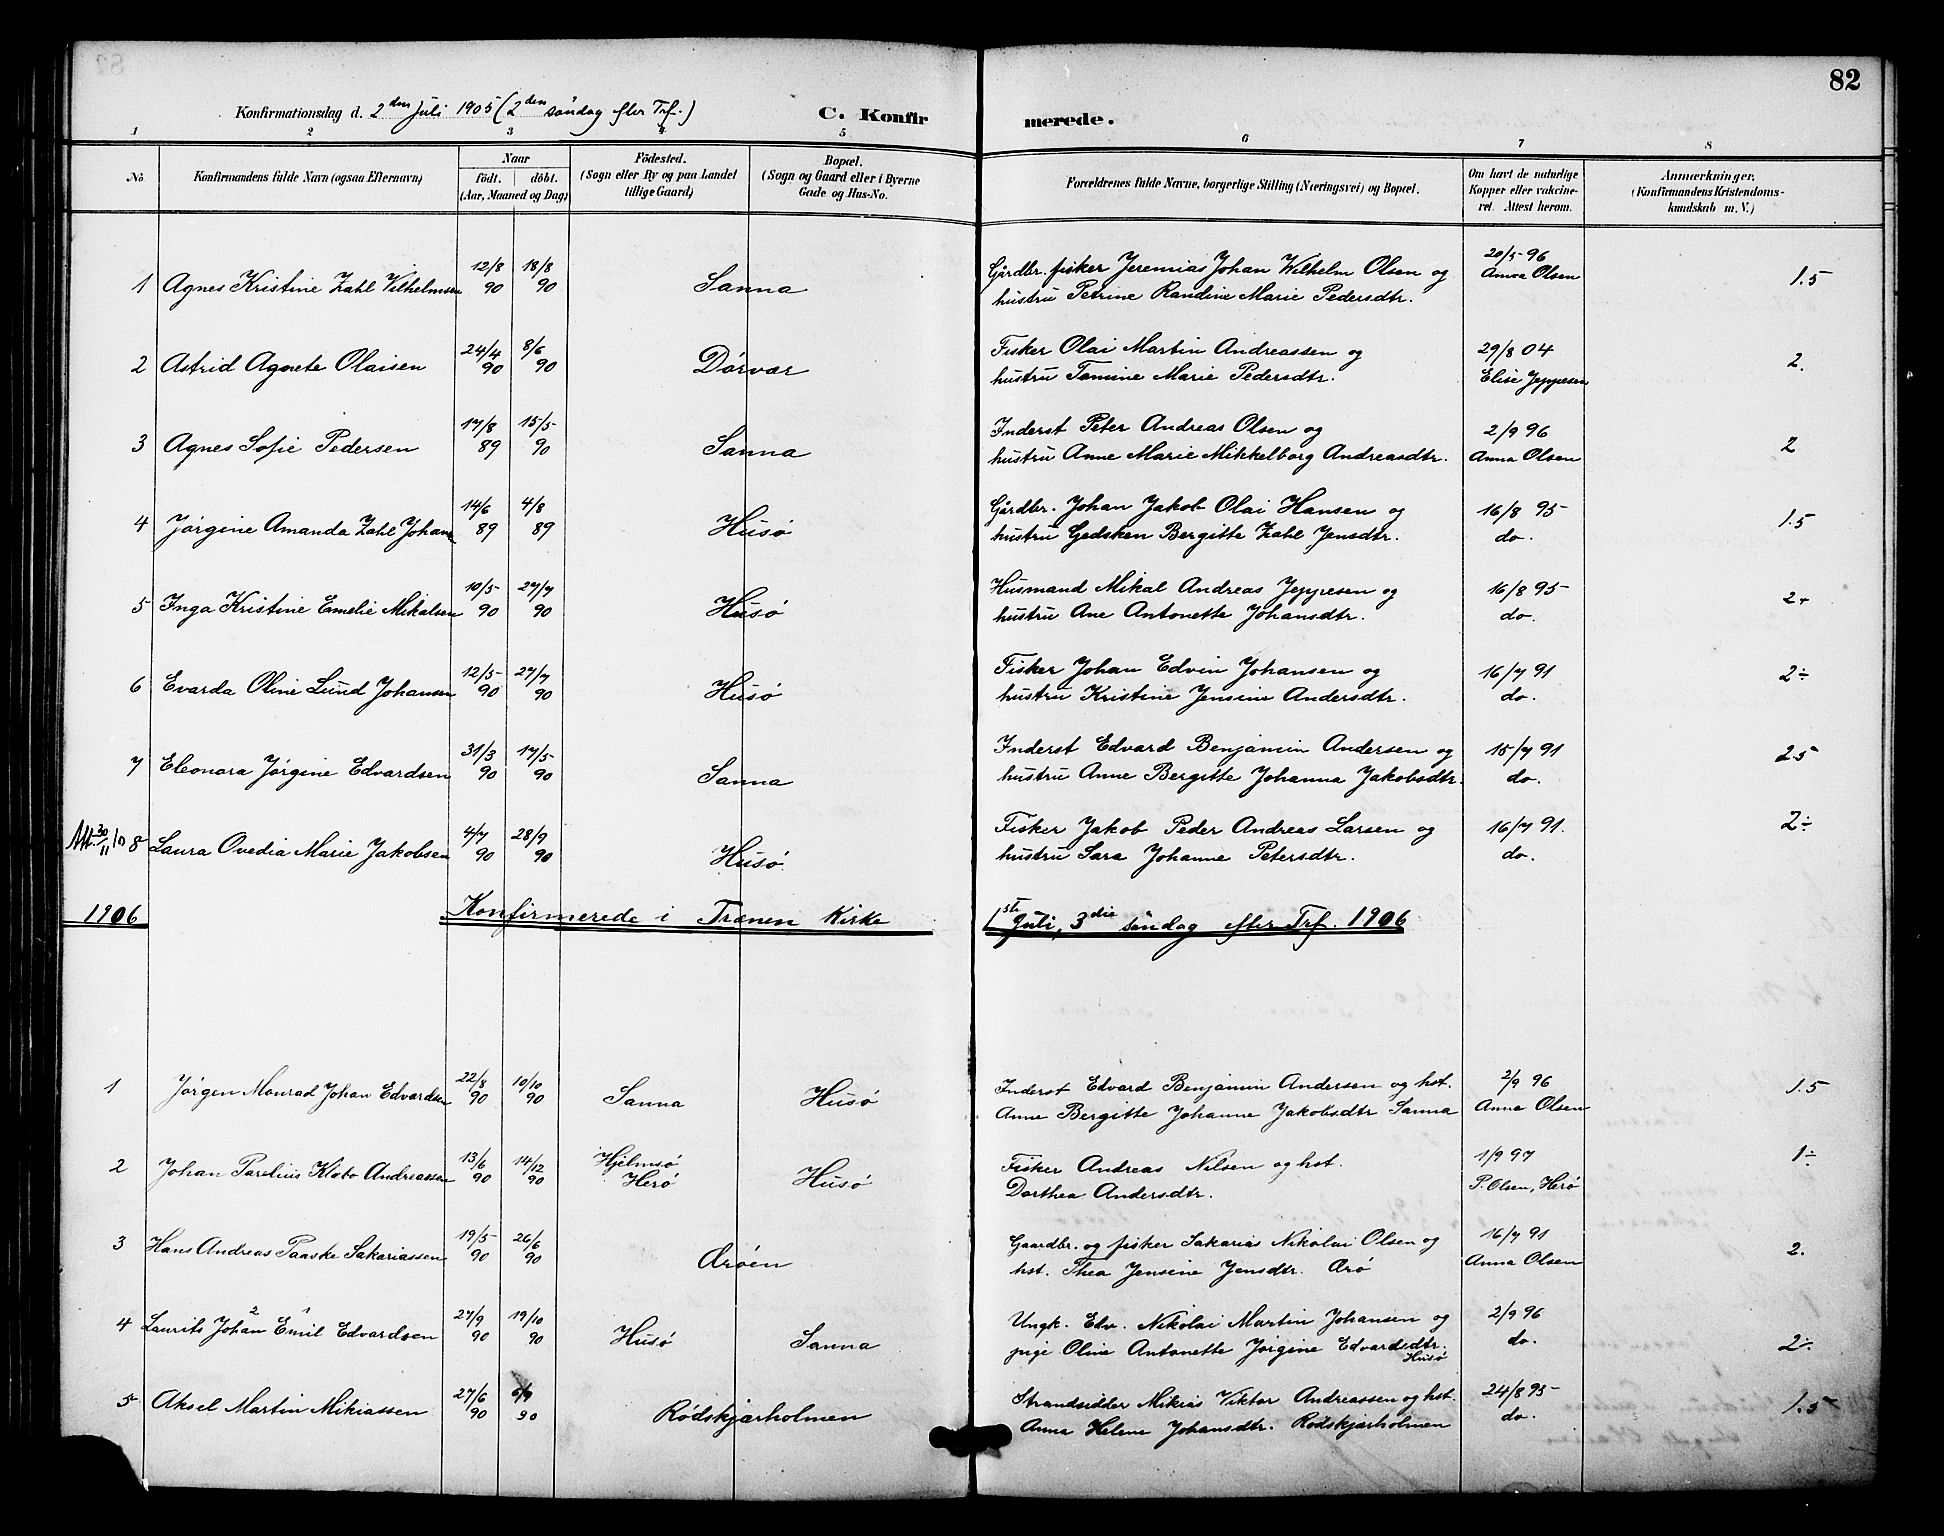 82
Konfirmationsdag d. 2den Juli 1905 (2den søndag efter Trf.) C. Konfirmerede.
1 2 3 4 5 6 7 8
No. Konfirmandens fulde Navn (ogsaa Efternavn) Naar födt. döbt. (Aar, Maaned og Dag) Födested. (Sogn eller By og paa Landet tillige Gaard) Bopæl. (Sogn og Gaard eller i Byerne Gade og Hus-No. Forældrenes fulde Navne, borgerlige Stilling (Næringsvei) og Bopæl. Om havt de naturlige Kopper eller vakcineret. Attest herom. Anmærkninger. (Konfirmandens Kristendomskundskab m. V.)
1 Agnes Kristine Zahl Vilhelmsen 12/8 90 18/8 90 Sanna Gårdbr. fisker Jeremias Johan Wilhelm Olsen og 20/5 96 1.5
hustru Petrine Randine Marie Pedersdtr. Anna Olsen
2 Astrid Agnete Olaisen 24/4 90 8/6 90 Dørvær Fisker Olai Martin Andreassen og 29/8 04 2.
hustru Tomine Marie Pedersdtr. Elise Jeppesen
3 Agnes Sofie Pedersen 17/8 89 15/5 90 Sanna Inderst Peter Andreas Olsen og 2/9 96 2
hustru Anne Marie Mikkelborg Andreasdtr. Anna Olsen
4 Jørgine Amanda Zahl Johans 14/6 89 4/8 89 Husø Gårdbr. Johan Jakob Olai Hansen og 16/8 95 1.5
hustru Gedsken Bergitte Zahl Jensdtr. do.
5 Inga Kristine Emelie Mikalsen 10/5 90 27/7 90 Husø Husmand Mikal Andreas Jeppesen og 16/8 95 2+
hustru Ane Antonette Johansdtr. do.
6 Evarda Oline Lund Johansen 12/5 90 27/7 90 Husø Fisker Johan Edvin Johansen og 16/7 91 2÷
hustru Kristine Jensine Andersdtr. do.
7 Eleonora Jørgine Edvardsen 31/3 90 17/5 90 Sanna Inderst Edvard Benjamin Andersen og 15/7 91 2.5
hustru Anne Bergitte Johanna Jakobsdtr. do.
Att. 30/11 10 8 Laura Ovedia Marie Jakobsen 4/7 90 28/9 90 Husø Fisker Jakob Peder Andreas Larsen og 16/7 91. 2÷
hustru Sara Johanne Petersdtr. do.
1906 Konfirmerede i Trænen Kirke 1ste Juli, 3die søndag efter Trf. 1906
1 Jørgen Monrad Johan Edvardsen 22/8 90 10/10 90 Sanna Husø Inderst Edvard Benjamin Andersen og hst. 2/9 96 1.5
Anne Bergitte Johanne Jakobsdtr Sanna Anna Olsen
2 Johan Parelius Klabo Andreassen 13/6 90 14/12 90 Hjelmsø Herø Husø Fisker Andreas Nilsen og hst. 1/9 97 1÷
Dorthea Andersdtr. P. Olsen, Herø
3 Hans Andreas Paaske Sakariassen 19/5 90 26/6 90 Ærøen Gaardbr. og fisker Sakarias Nikolai Olsen og 16/7 91 2.
hst. Thea Jensine Jensdtr. Ærø Anna Olsen
4 Laurits Johan 2 Emil 1 Edvardsen 27/9 90 19/10 90 Husø Sanna Ungk. Edv. Nikolai Martin Johansen og 2/9 96 2÷
pige Oline Antonette Jørgine Edvardsdtr. Husø do.
5 Aksel Martin Mikiassen 27/6 90 6/9 90 Rødskjærholmen Strandsidder Mikias Viktor Andreassen og hst. 24/8 95 1.5
Anna Helene Johansdtr. Rødskjærholmen do.